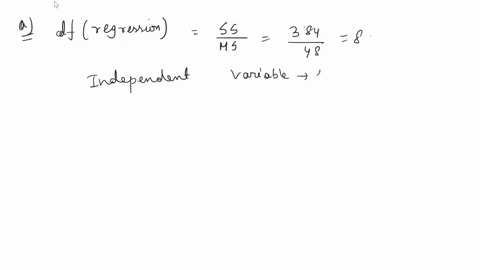 a) df (regression) = SS/MS = 384/48 = 8
Independent Variable →